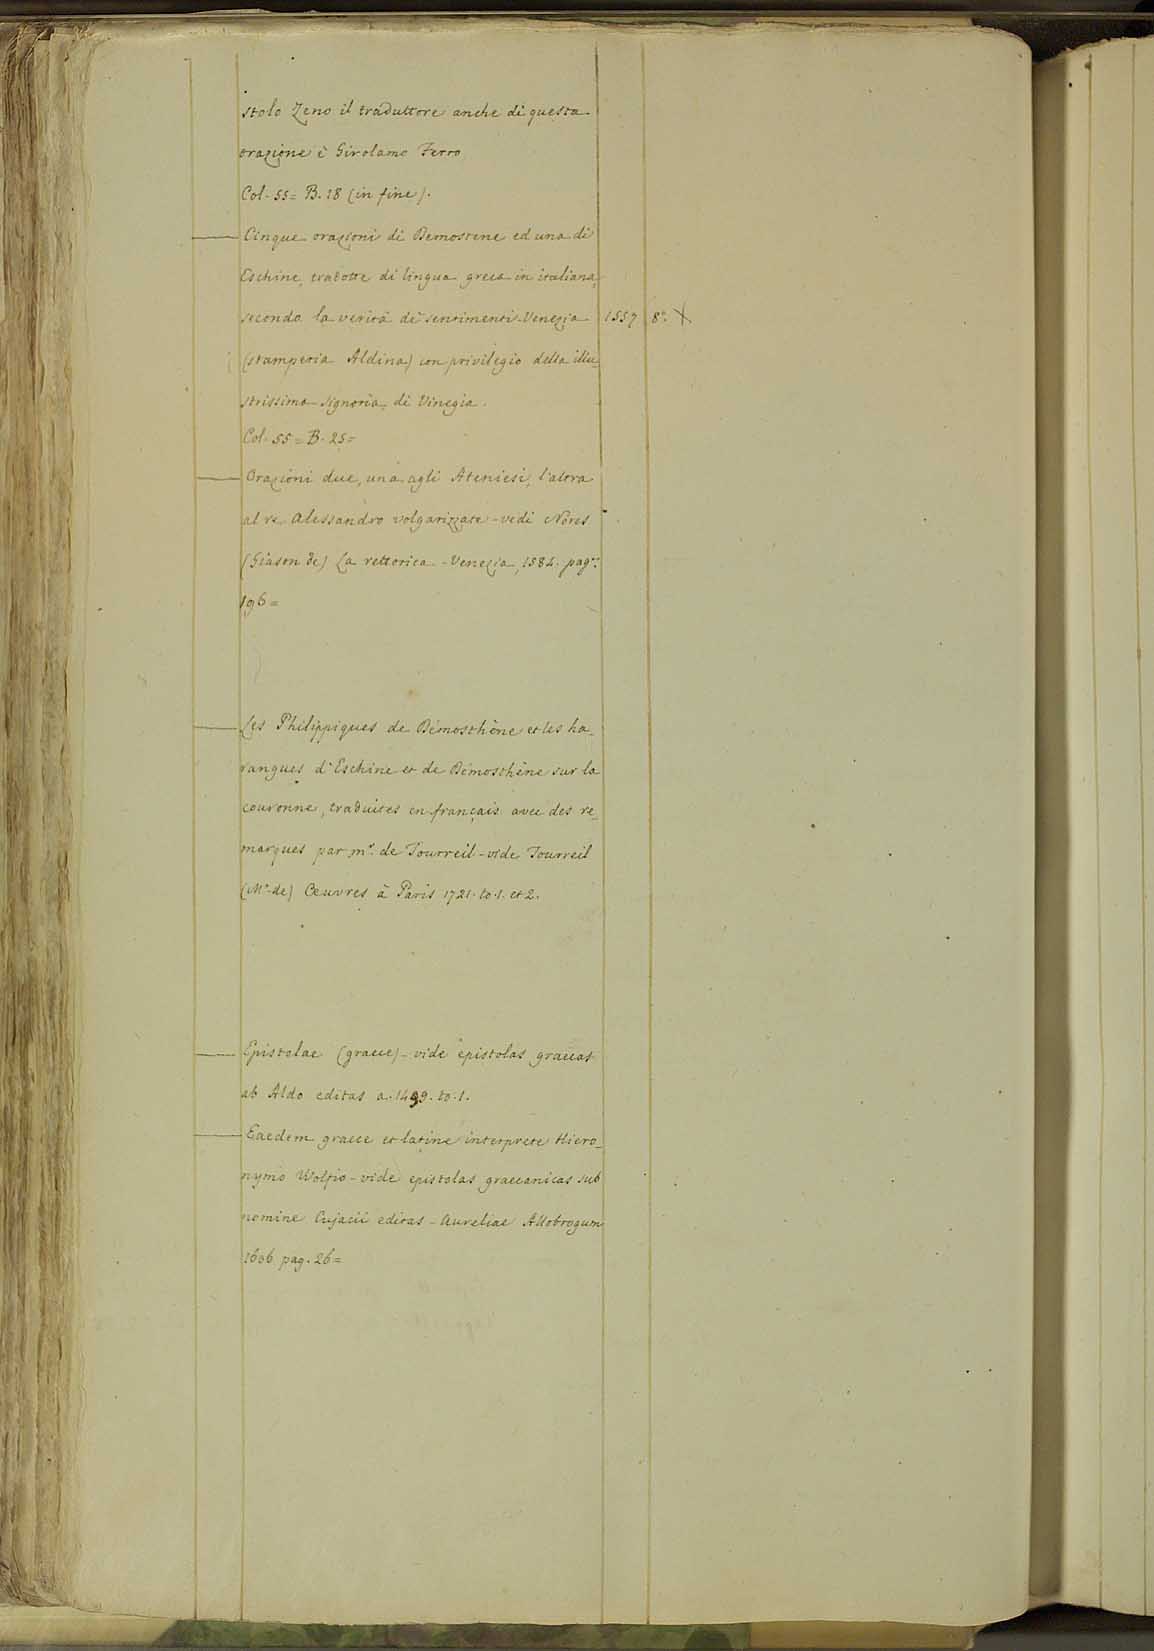 stolo Zeno il traduttore anche di questa
orazione è Girolamo Ferro
Col. 55 = B. 18 (in fine).
— Cinque orazioni di Demostene ed una di
Eschine, tradotte di lingua greca in italiana,
secondo la verità de' sentimenti. Venezia 1557 8.° X
(stamperia Aldina) con privilegio della illu_
strissima signoria di Vinegia.
Col. 55 = B. 25 =
— Orazioni due, una agli Ateniesi, l'altra
al re Alessandro volgarizzate - vedi Nores
(Giason de) La rettorica - Venezia, 1584. pag.
196 =
— Les Philippiques de Démosthène et les ha_
rangues d'Eschine et de Démosthène sur la
couronne, traduites en français avec des re_
marques par m.r de Tourreil - vide Tourreil
(M.r de) Œuvres à Paris 1721. to. 1. et 2.
— Epistolae (graece) - vide epistolas graecas
ab Aldo editas a. 1499. to. 1.
— Eaedem graece et latine interprete Hiero_
nymo Wolfio - vide epistolas graecanicas sub
nomine Cujacii editas - Aureliae Allobrogum
1606 pag. 26 =